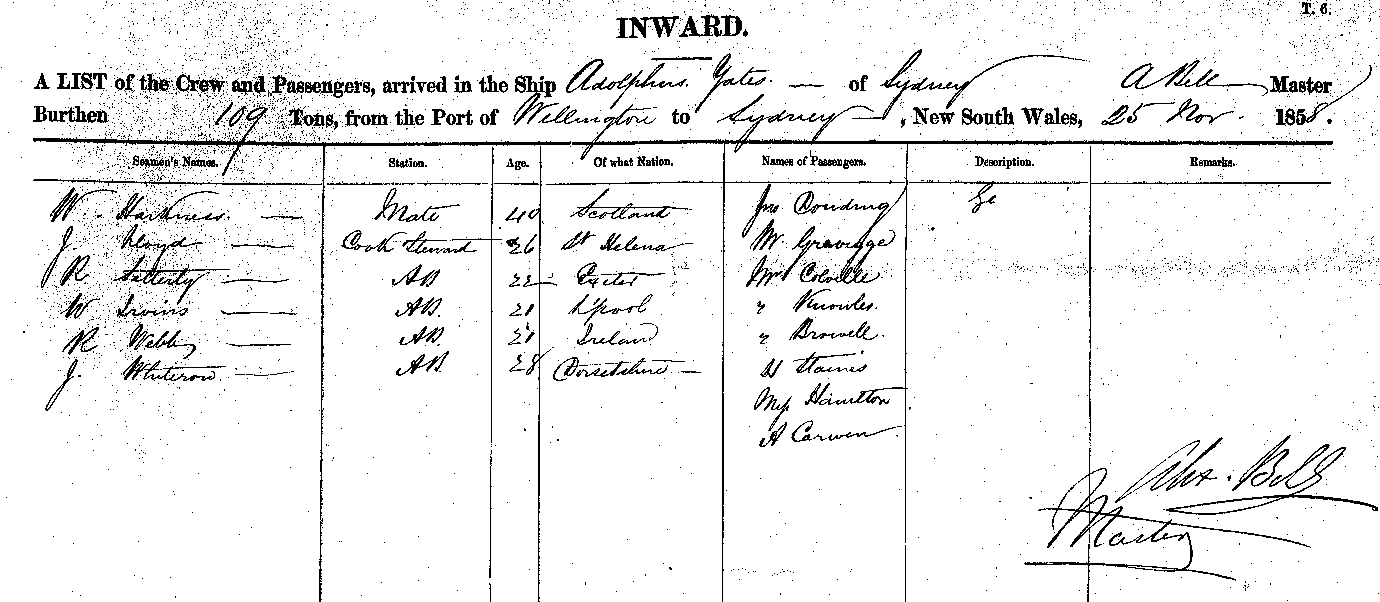 T. 6.
INWARD.
A LIST of the Crew and Passengers, arrived in the Ship Adolphus Yates of Sydney A Bell Master
Burthen 109 Tons, from the Port of Wellington to Sydney, New South Wales, 25 Nov. 1858.
Seamen's Names. Station. Age. Of what Nation. Names of Passengers. Description. Remarks.
W. Harkness Mate 40 Scotland Jno
J. Lloyd Cook Steward 26 St Helena Mr
R AB 22 Exeter Colville
W Irvins AB. 21 L'pool " Knowles
R Webb AB. 21 Ireland " Browell.
J. AB. 28 Dorsetshire Stains
Hamilton
A Carwen
Alex. Bell
Master